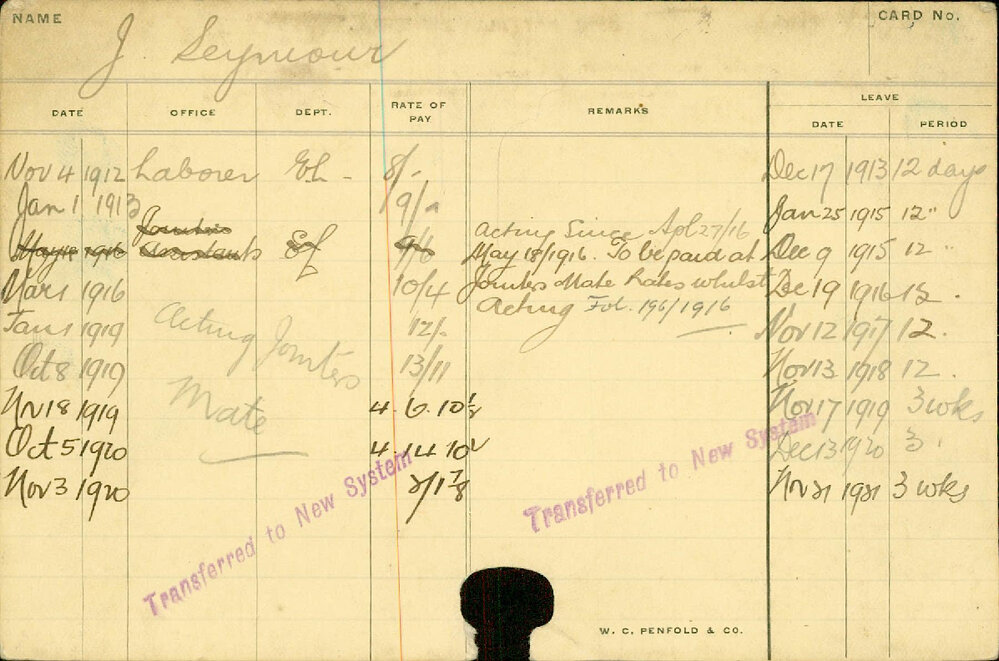 NAME
CARD No.
J Seymour
DATE OFFICE DEPT. RATE OF PAY REMARKS LEAVE
DATE PERIOD
Nov 4 1912 Laborer EL - 8/- Dec 17 1913 12 days
Jan 1 1913 9/- Jan 25 1915 12 "
Jointers Acting Since Apl 27/16
May 18 1916 Assistants EL 9/6 May 18/1916. To be paid at Dec 9 1915 12 "
Mar 1 1916 10/4 Jointers Mate Rates whilst Dec 19 1916 12 .
Acting Fol. 196/1916
Jan 1 1919 Acting Jointers 12/- Nov 12 1917 12.
Oct 8 1919 13/11 Nov 13 1918 12 .
Nov 18 1919 Mate 4. 6. 10½ Nov 17 1919 3 wks
Oct 5 1920 4. 14 10½ Dec 13 1920 3 "
Nov 3 1920 2/1⅞ Nov 21 1921 3 wks
Transferred to New System
Transferred to New System
W. C. PENFOLD & CO.